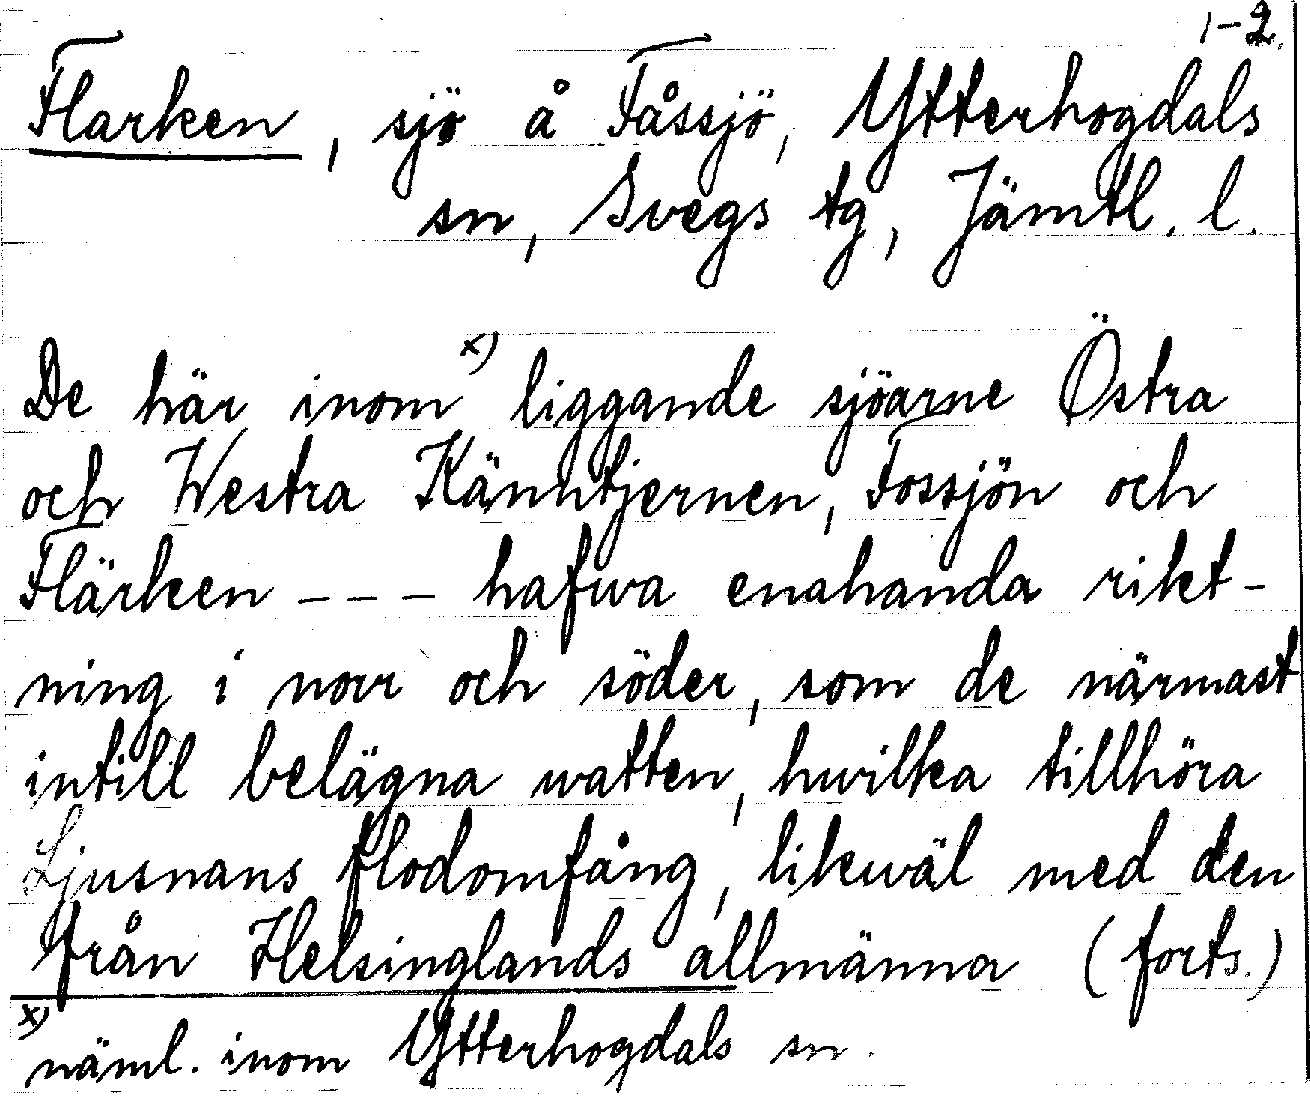 1-2.
Flarken, sjö å Fåssjö, Ytterhogdals
sn, Svegs tg, Jämtl. l.
De här inom x) liggande sjöarne Östra
och Westra Känntjernen, Fossjön och
Flärken --- hafwa enahanda rikt-
ning i norr och söder, som de närmast
intill belägna watten, hwilka tillhöra
Ljusnans flodomfång, likwäl med den
från Helsinglands allmänna (forts.)
x) näml. inom Ytterhogdals sn.